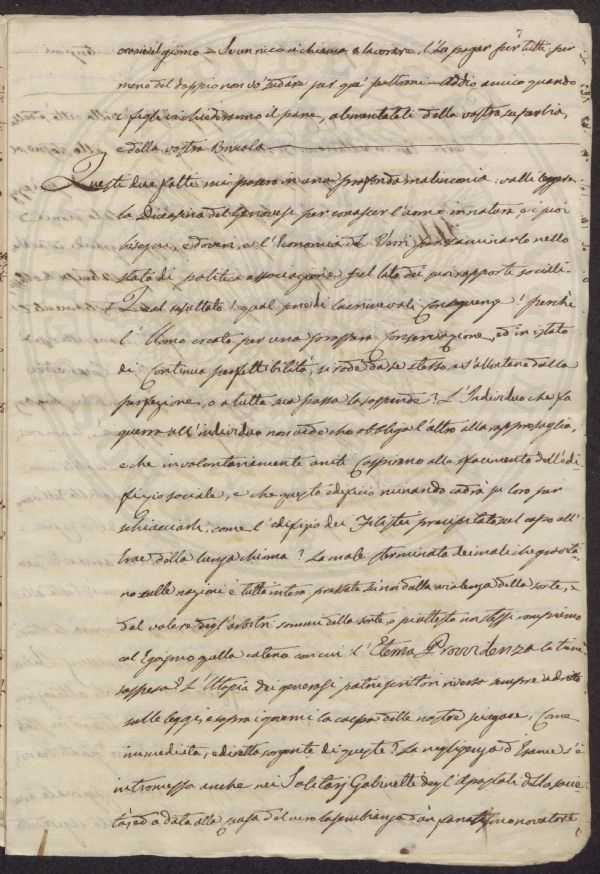 il giorno — Se un ricco vi chiama a lavorare, l'ha pagar per tutti, per
meno del doppio non vò sudare per que' poltroni — Addio amico quando
i figli vi chiederanno il pane, alimentateli della vostra superbia,
e della vostra Briscola —
Queste due fatti mi posero in una profonda malinconia: valli leggere
la Diceosina del Genovese per conoscer l'uomo in natura e i suoi
bisogni, e doveri, e l'Economia del Verri per esaminarlo nello
stato di politica associazione sul lato dei suoi rapporti sociali.
Qual risultato! qual piena di lacrimevoli conseguenze! perchè
l'Uomo creato per una conservazione, ed in istato
di continua perfettibilità, si rode da se stesso, e s'allontana dalla
perfezione, o a tutta sua possa la sospende? L'Individuo che fa
guerra all'individuo non vede che obbliga l'altro alla rappresaglia,
e che involontariamente uniti cospirano alla sfacimento dell'edi-
fizio sociale, e che questo edificio ruinando cadrà su loro per
schiacciarli, come l'edifizio dei Filistei precipitato sul capo all'
dalla lunga chioma? La mole sterminata dei mali che gravita-
no sulle nazioni è tutta intera dalla violenza della sorte, e
dal volere degl'arbitri sommi della sorte, o piuttosto noi stessi rompiamo
col Egoismo quella catena con cui l'Eterna Provvidenza la tiene
sospesa? L'Utopia dei generosi patrii scrittori riverso sempre a dritto
sulle leggi, e sopra i governi la colpa delle nostre sciagure, come
immediata, e diretta sorgente di queste? La negligenza d'Esame s'è
intromessa anche nei Solitarj Gabinetti degl'Apostoli della socie-
tà, ed a data alla causa del vero la sembianza d'un fanatismo novatore